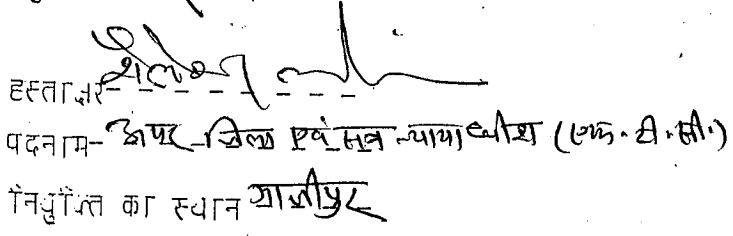 हस्ताक्षर- शैलेन्द्र
पदनाम- अपर जिला एवं सत्र न्यायाधीश (एफ. टी. सी.)
नियुक्ति का स्थान गाजीपुर